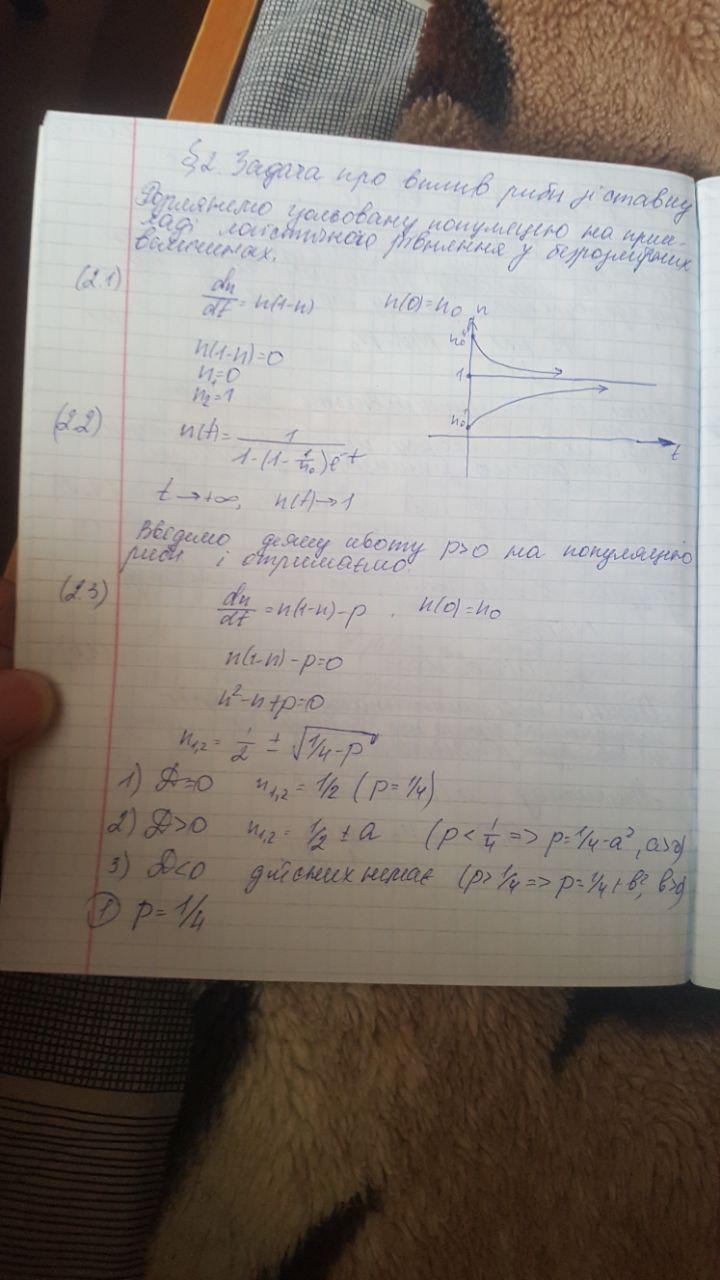 §2. Задача про вилив риби зі ставку
Розглянемо ізольовану популяцію на прик-
ладі логістичного рівняння у безрозмірних
величинах.
(2.1) dn/dt = n(1-n) n(0)=n₀
n
n₀
1
n₀
t
n(1-n)=0
n₁=0
n₂=1
(2.2) n(t) = 1/(1-(1-1/n₀)e^-t)
t→+∞, n(t)→1
Введемо деяку квоту p>0 на популяцію
риби і отримаємо:
(2.3) dn/dt = n(1-n)-p, n(0)=n₀
n(1-n)-p=0
n²-n+p=0
n₁,₂ = 1/2 ± √(1/4-p)
1) D=0 n₁,₂ = 1/2 (p=1/4)
2) D>0 n₁,₂ = 1/2 ± a (p<1/4 => p=1/4-a², a>0)
3) D<0 дійсних немає (p>1/4 => p=1/4+b², b>0)
① p=1/4